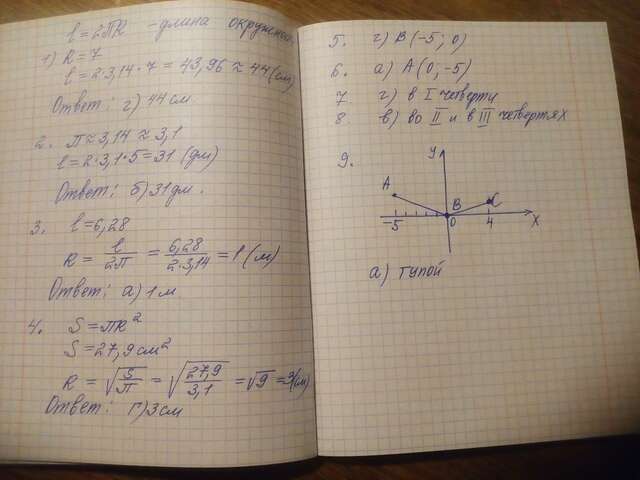 l = 2πR - длина окружнос
1) R = 7
l = 2·3,14·7 = 43,96 ≈ 44 (см)
Ответ: г) 44 см
2. π ≈ 3,14 ≈ 3,1
l = 2·3,1·5 = 31 (дм)
Ответ: б) 31 дм.
3. l = 6,28
R = l/2π = 6,28/2·3,14 = 1 (м)
Ответ: а) 1 м
4. S = πR²
S = 27,9 см²
R = √S/π = √27,9/3,1 = √9 = 3 (см)
Ответ: г) 3 см
5. г) B (-5; 0)
6. а) A (0; -5)
7. г) в I четверти
8. в) во II и в III четвертях
9.
y
A
B
C
-5
0
4
x
а) тупой